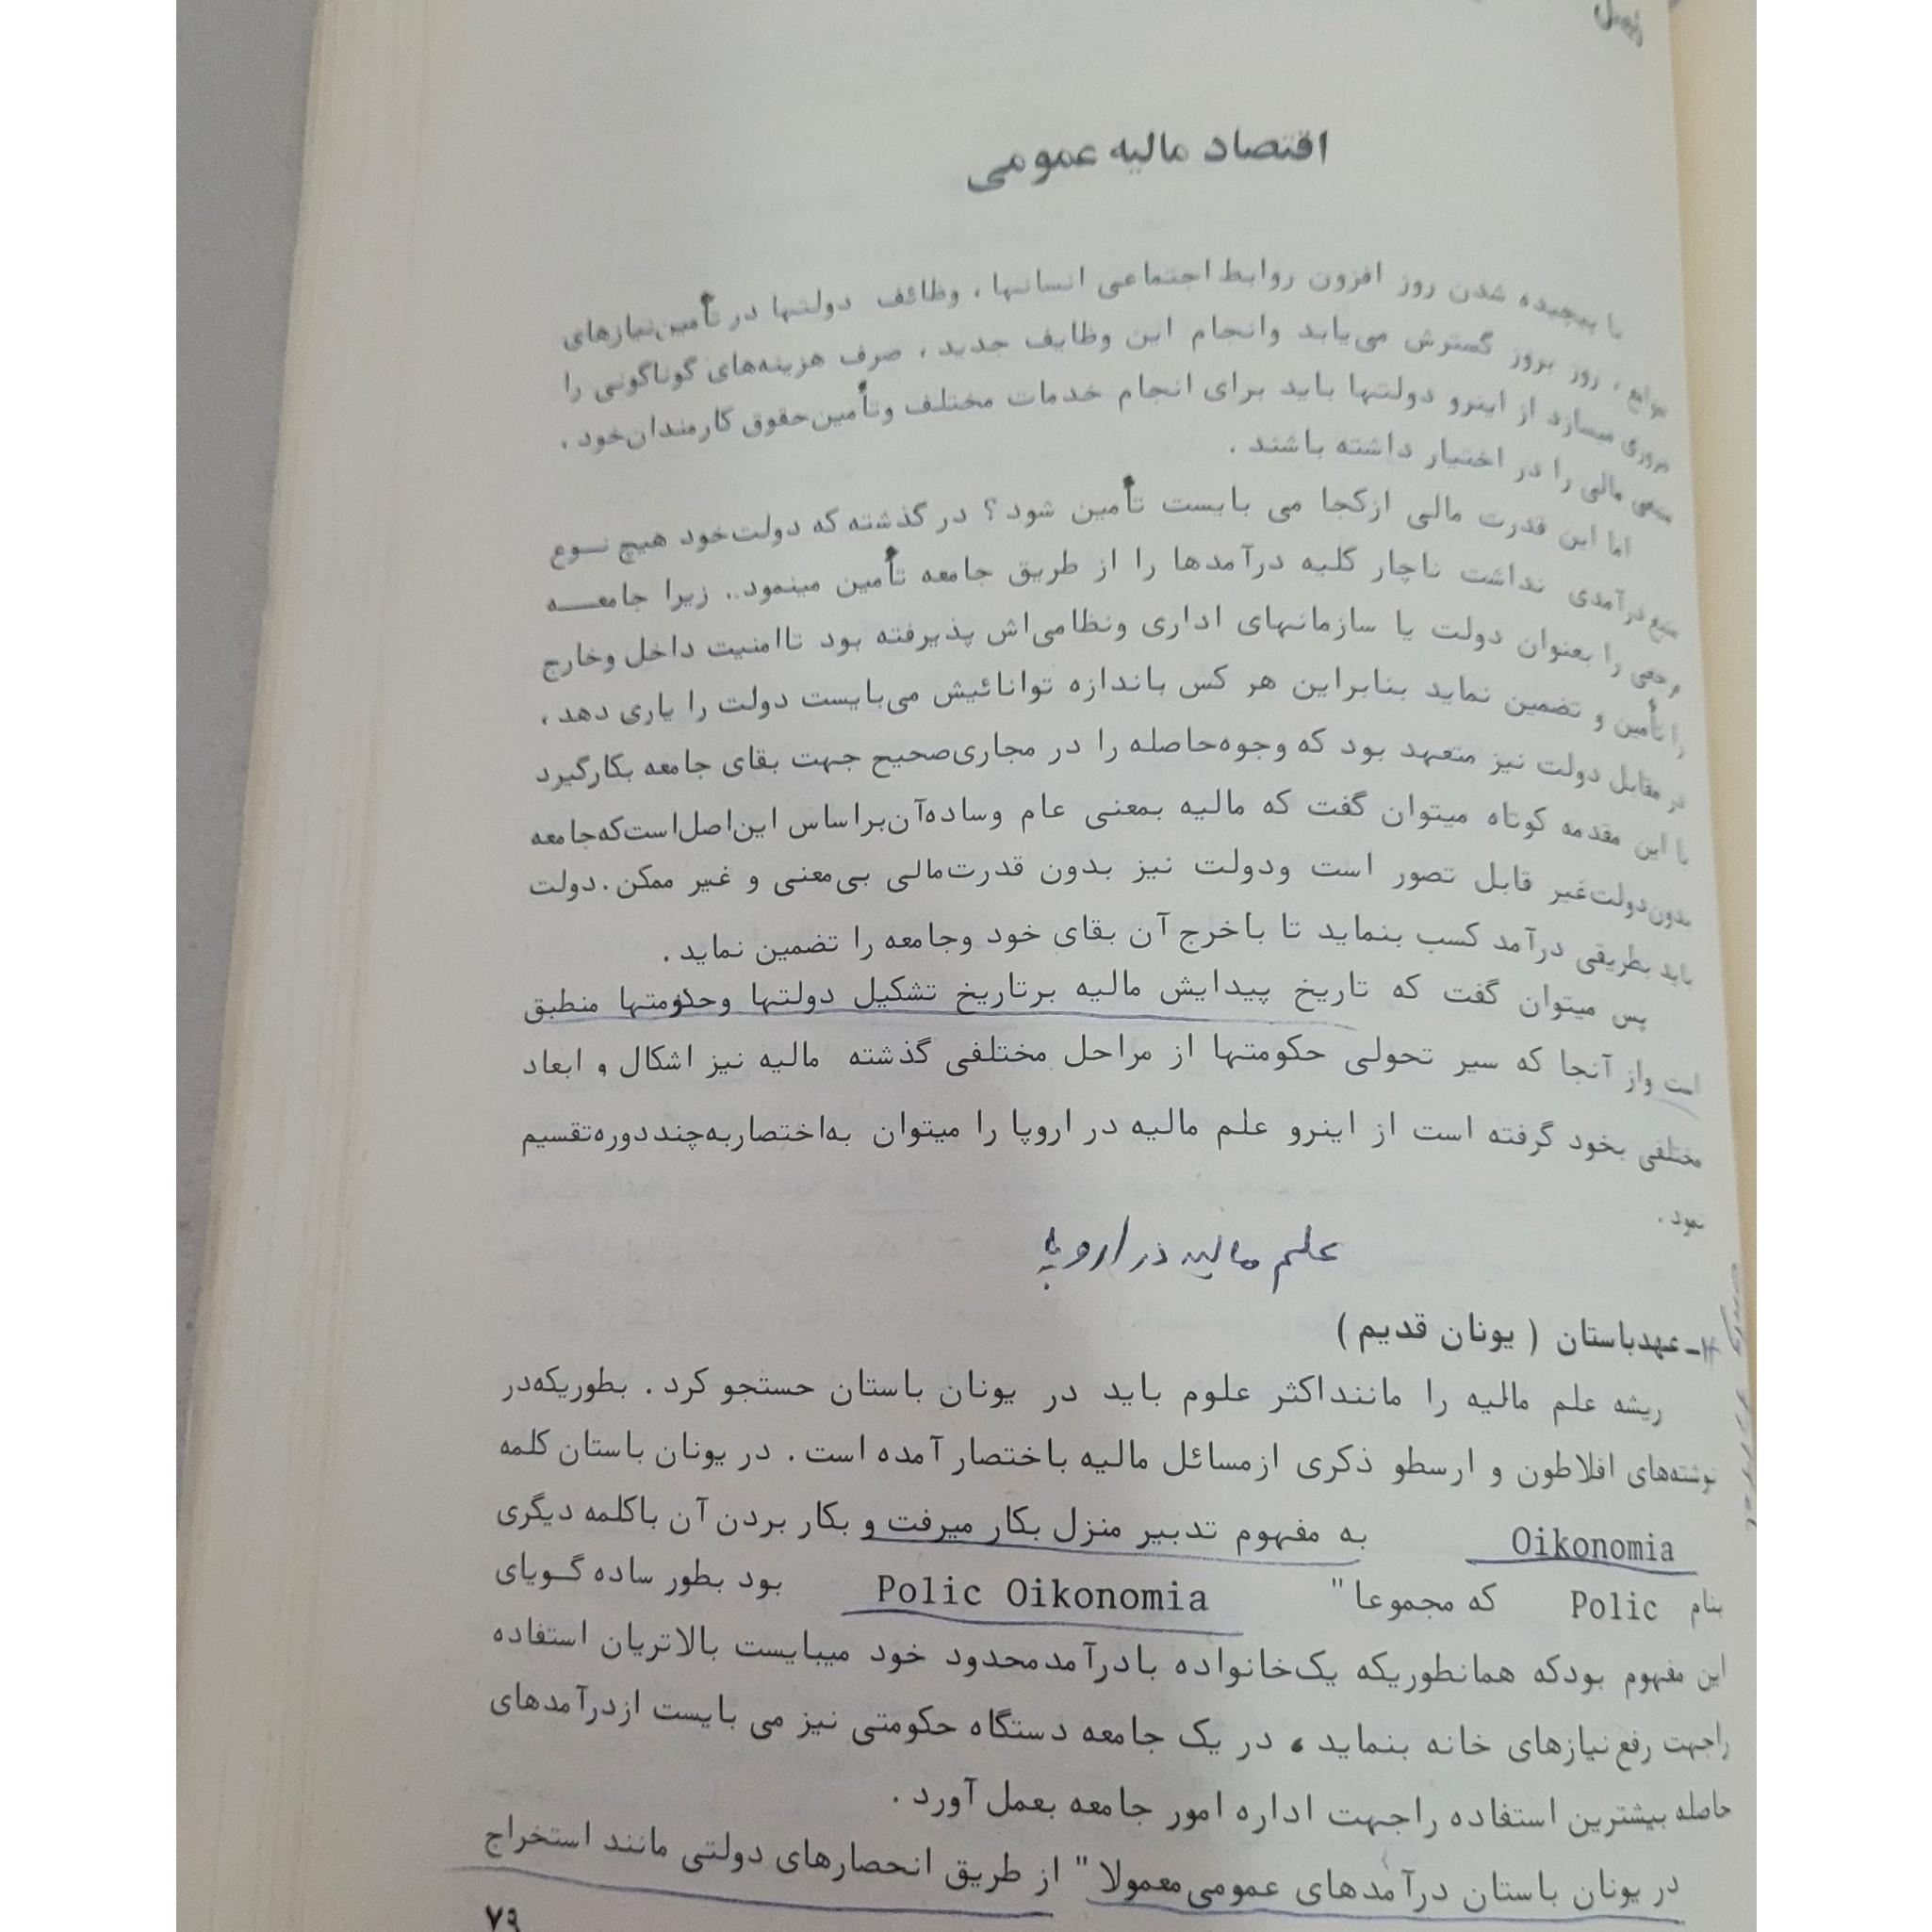 اقتصاد مالیه عمومی
با پیچیده شدن روز افزون روابط اجتماعی انسانها ، وظائف دولتها در تأمین‌نیازهای
جوامع ، روز بروز گسترش می‌یابد وانجام این وظایف جدید ، صرف هزینه‌های گوناگونی را
ضروری میسازد از اینرو دولتها باید برای انجام خدمات مختلف وتأمین‌حقوق کارمندان‌خود ،
منبعی مالی را در اختیار داشته باشند .
اما این قدرت مالی ازکجا می بایست تأمین شود ؟ در گذشته که دولت‌خود هیچ نــوع
منبع درآمدی نداشت ناچار کلیه درآمدها را از طریق جامعه تأمین مینمود . زیرا جامعــه
را بعنوان دولت یا سازمانهای اداری ونظامی‌اش پذیرفته بود تاامنیت داخل وخارج
را تأمین و تضمین نماید بنابراین هر کس باندازه توانائیش می‌بایست دولت را یاری دهد ،
در مقابل دولت نیز متعهد بود که وجوه‌حاصله را در مجاری‌صحیح جهت بقای جامعه بکارگیرد
با این مقدمه کوتاه میتوان گفت که مالیه بمعنی عام وساده‌آن‌براساس این‌اصل‌است‌که‌جامعه
بدون‌دولت‌غیر قابل تصور است ودولت نیز بدون قدرت‌مالی بی‌معنی و غیر ممکن . دولت
باید بطریقی درآمد کسب بنماید تا باخرج آن بقای خود وجامعه را تضمین نماید .
پس میتوان گفت که تاریخ پیدایش مالیه برتاریخ تشکیل دولتها وحکومتها منطبق
است واز آنجا که سیر تحولی حکومتها از مراحل مختلفی گذشته مالیه نیز اشکال و ابعاد
مختلفی بخود گرفته است از اینرو علم مالیه در اروپا را میتوان به‌اختصاربه‌چنددوره‌تقسیم
نمود .
علم مالیه در اروپا
ـ عهدباستان ( یونان قدیم )
ریشه علم مالیه را ماننداکثر علوم باید در یونان باستان حستجو کرد . بطوریکه‌در
نوشته‌های افلاطون و ارسطو ذکری ازمسائل مالیه باختصار آمده است . در یونان باستان کلمه
Oikonomia به مفهوم تدبیر منزل بکار میرفت و بکار بردن آن باکلمه دیگری
بنام Polic که مجموعا " Polic Oikonomia بود بطور ساده گـویای
این مفهوم بودکه همانطوریکه یک‌خانواده بادرآمدمحدود خود میبایست بالاتریان استفاده
راجهت رفع نیازهای خانه بنماید ، در یک جامعه دستگاه حکومتی نیز می بایست ازدرآمدهای
حاصله بیشترین استفاده راجهت اداره امور جامعه بعمل آورد .
در یونان باستان درآمدهای عمومی‌معمولا " از طریق انحصارهای دولتی مانند استخراج
۷۹